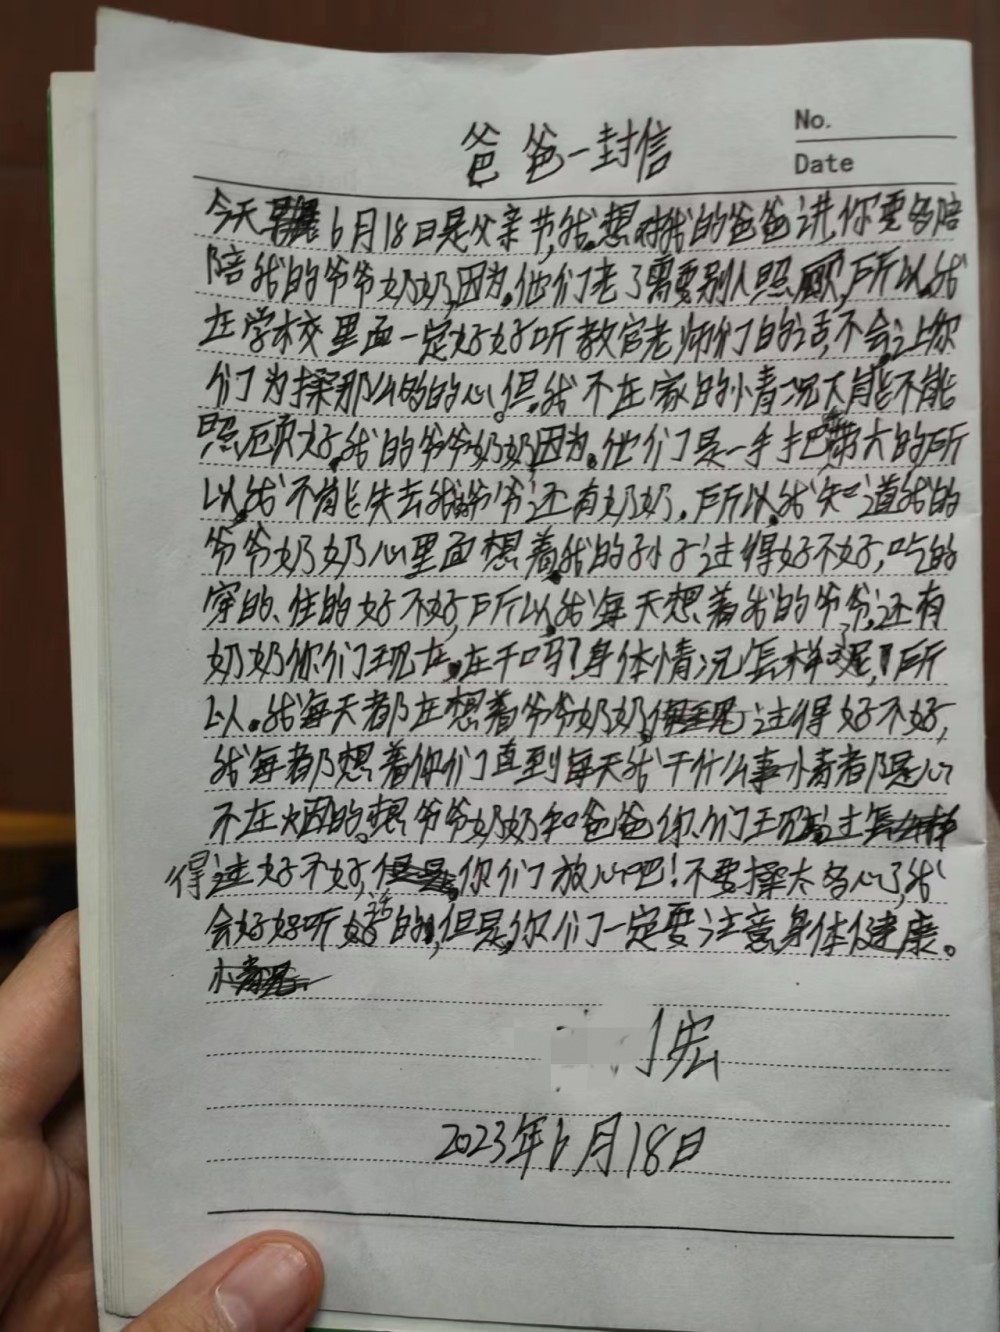 No.
Date
爸爸一封信
今天6月18日是父亲节,我想对我的爸爸讲,你要多陪
陪我的爷爷奶奶,因为他们老了需要别人照顾,所以我
在学校里面一定好好听教官老师们的话,不会让你
们为操那么的的心。但我不在家的情况大能不能
照顾好我的爷爷奶奶因为他们是一手把带大的所
以我不能失去我爷爷还有奶奶。所以我知道我的
爷爷奶奶心里面想着我的孙子过得好不好,吃的
穿的、住的好不好,所以我每天想着我的爷爷,还有
奶奶你们现在在干吗?身体情况怎样呢!所
以。我每天都在想着爷爷奶奶过得好不好,
我每都想着你们直到每天我干什么事情都是心
不在烟的想爷爷奶奶和爸爸你们现
得过好不好,你们放心吧!不要操太多心了我
会好好听好话的,但是,你们一定要注意身体健康。
宏
2023年6月18日